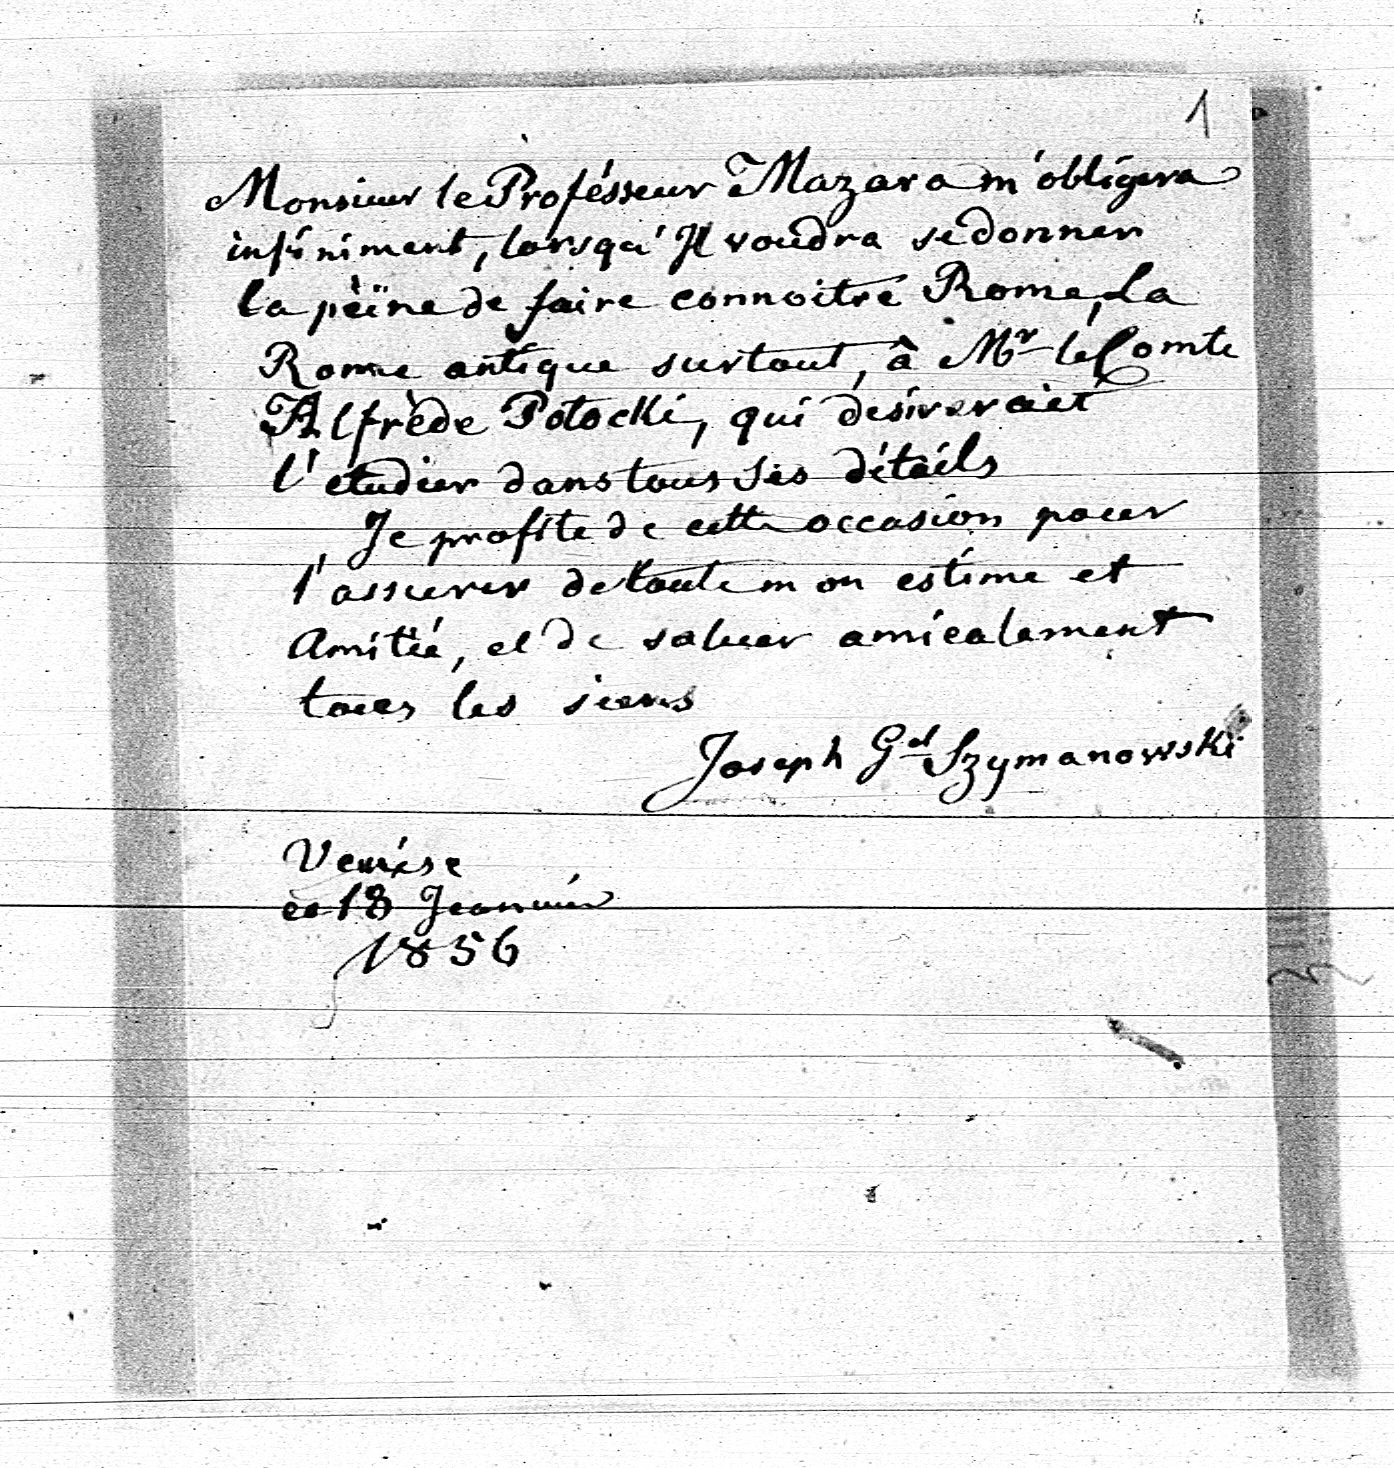 1
Monsieur le Profésseur Mazara m'obligera
infiniment, lorsqu'Il voudra se donner
la pèïne de faire connoitre Rome, la
Rome antique surtout, â Mr le Comte
Alfrède Potocki, qui desireroiet
l'etudier dans tous ses détails
Je profite de cette occasion pour
l'assurer de toute mon estime et
Amitié, et de saluer amicalement
tous les siens
Joseph Gal Szymanowski
Venise
ce 18 Janvier
1856